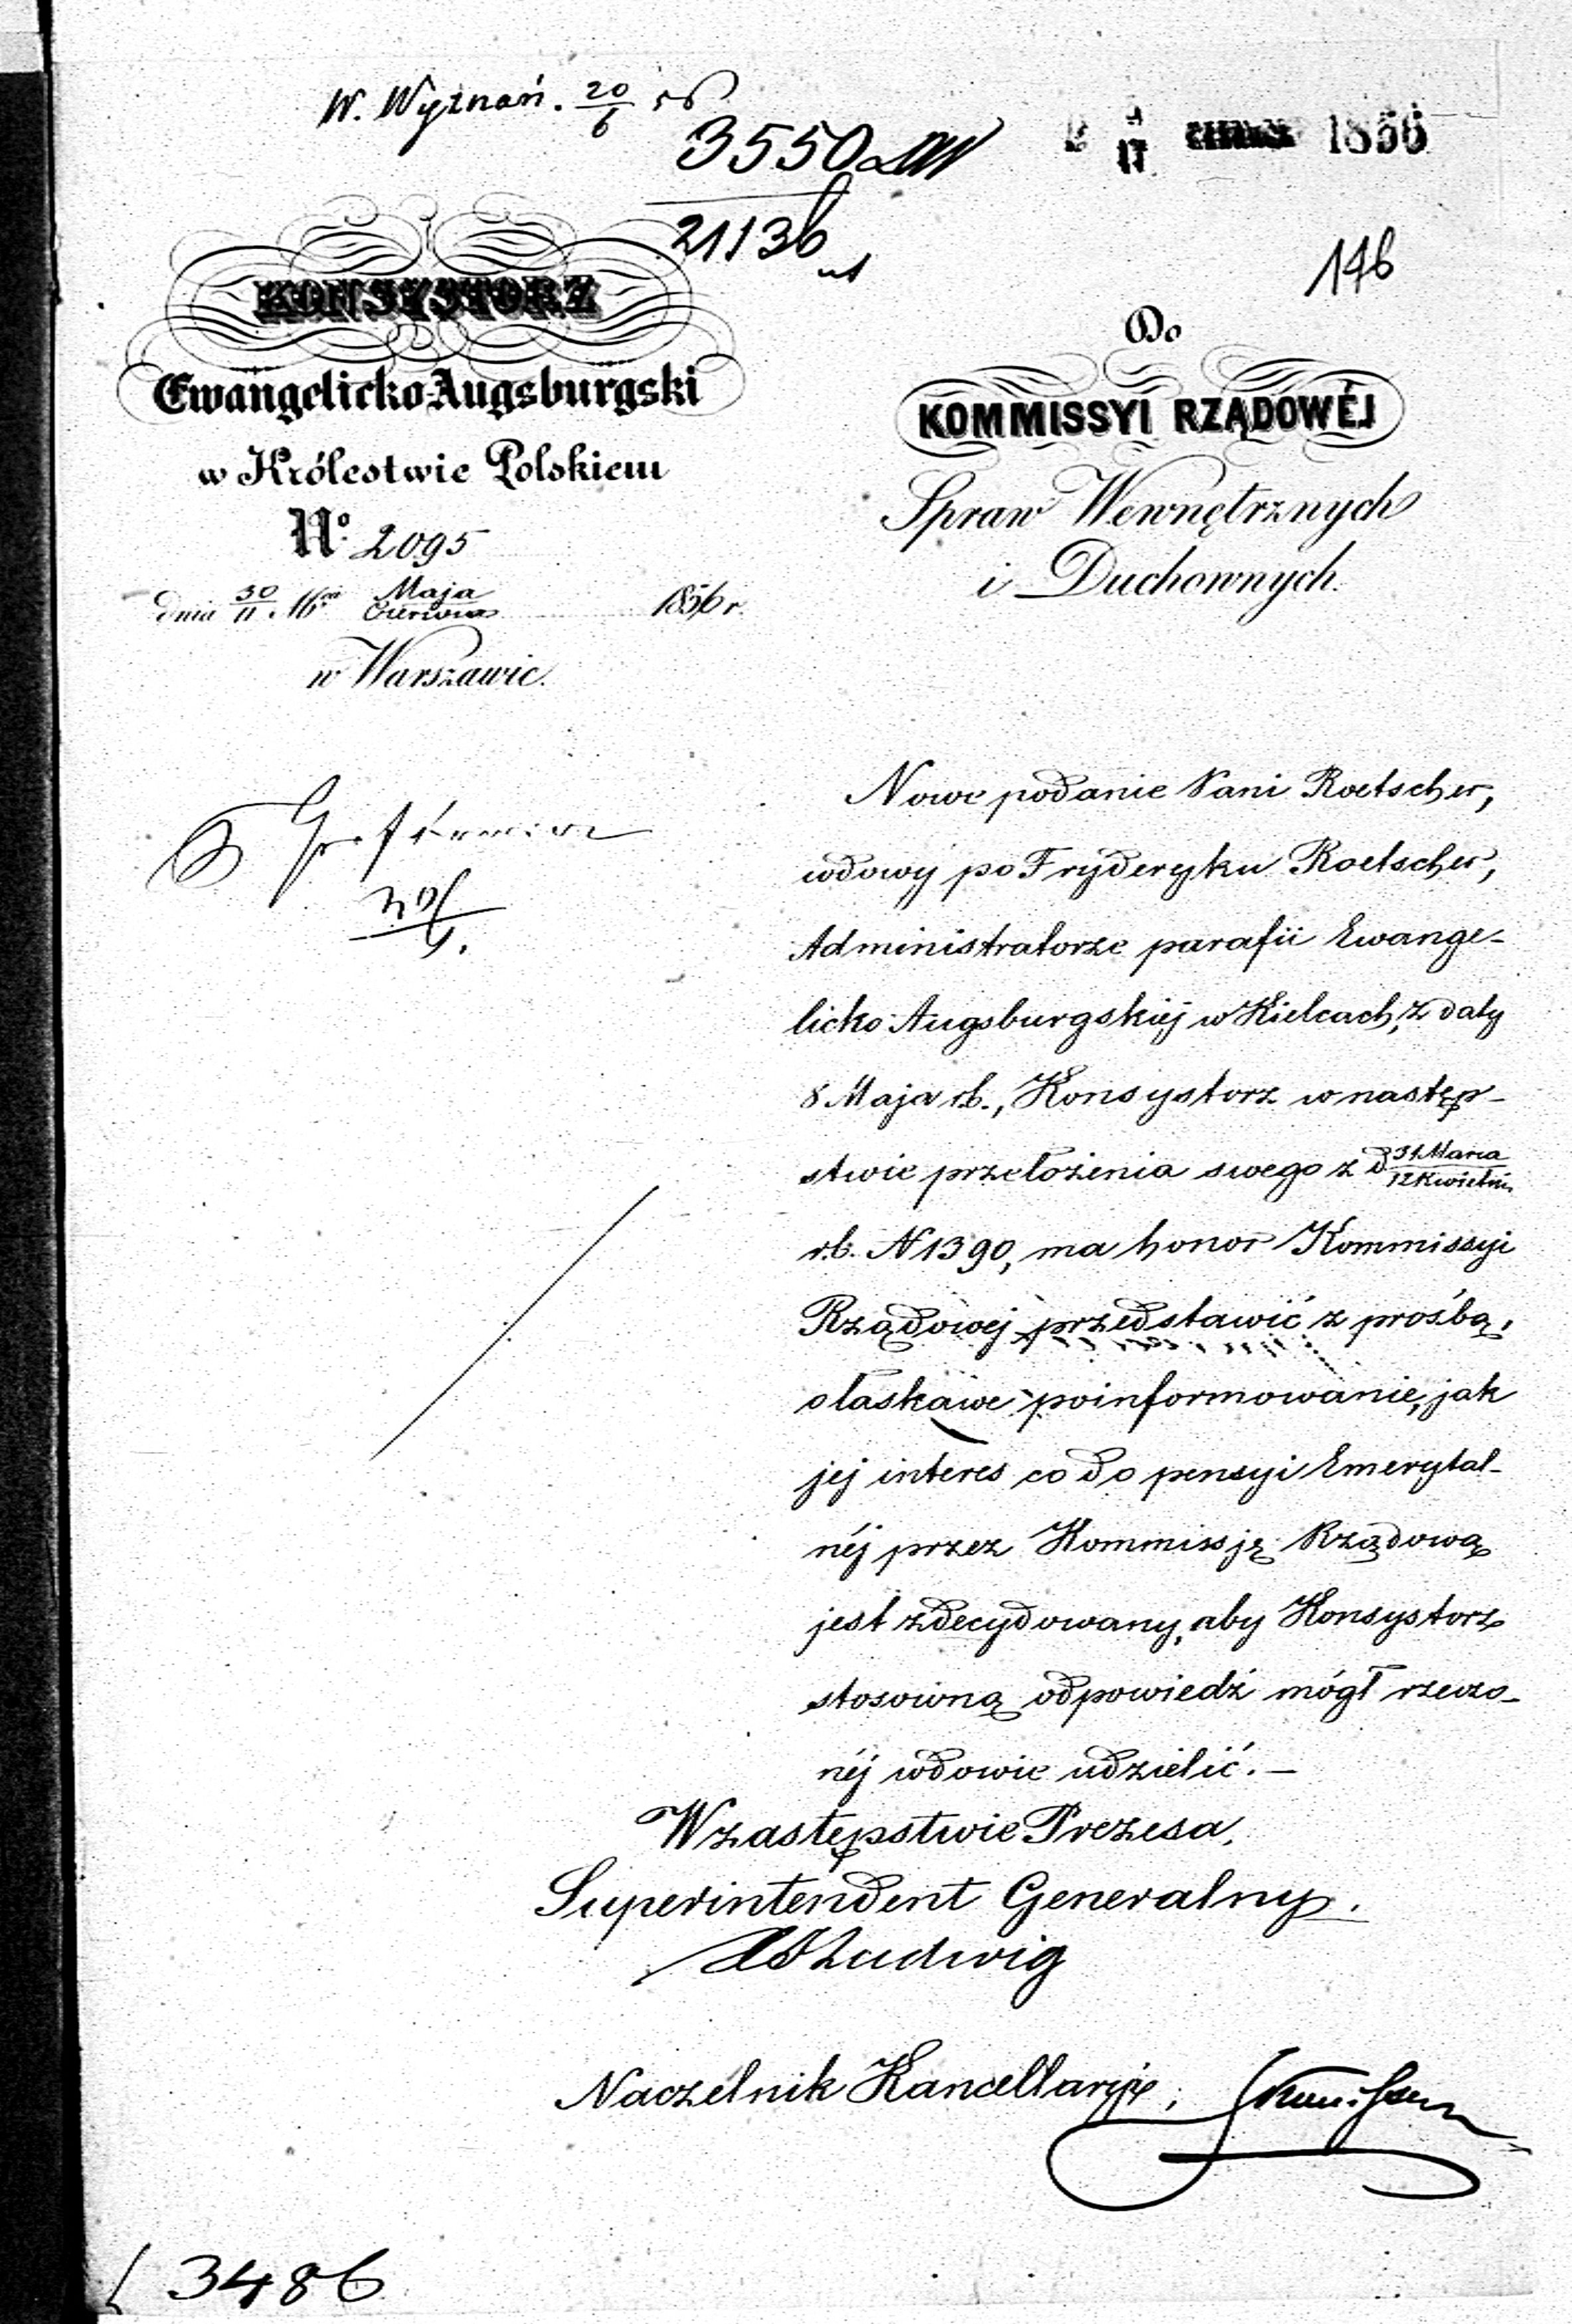 W. Wyznań. 20/6 56
3550
21136
1856
146
KONSYSTORZ
Ewangelicko-Augsburgski
w Królestwie Polskiem
No 2095
dnia 30/11 Mca Maja/Czerwca 1856 r.
w Warszawie.
Do
KOMMISSYI RZĄDOWÉJ
Spraw Wewnętrznych
i Duchownych.
Nowe podanie Pani Roetscher,
wdowy po Fryderyku Roetscher,
Administratorze parafii Ewange-
licko Augsburgskiéj w Kielcach, z daty
8 Maja rb., Konsystorz w następ-
stwie przełożenia swego z d 31 Marca/12 Kwietnia
r.b. N 1390, ma honor Kommissyi
Rządowej przedstawić z prośbą,
o łaskawe poinformowanie, jak
jej interes co do pensyi Emerytal-
néj przez Kommissję Rządową
jest zdecydowany, aby Konsystorz
stosowną odpowiedź mógł rzeczo-
néj wdowie udzielić. —
W zastępstwie Prezesa,
Superintendent Generalny.
Ludwig
Naczelnik Kancellaryi,
3486